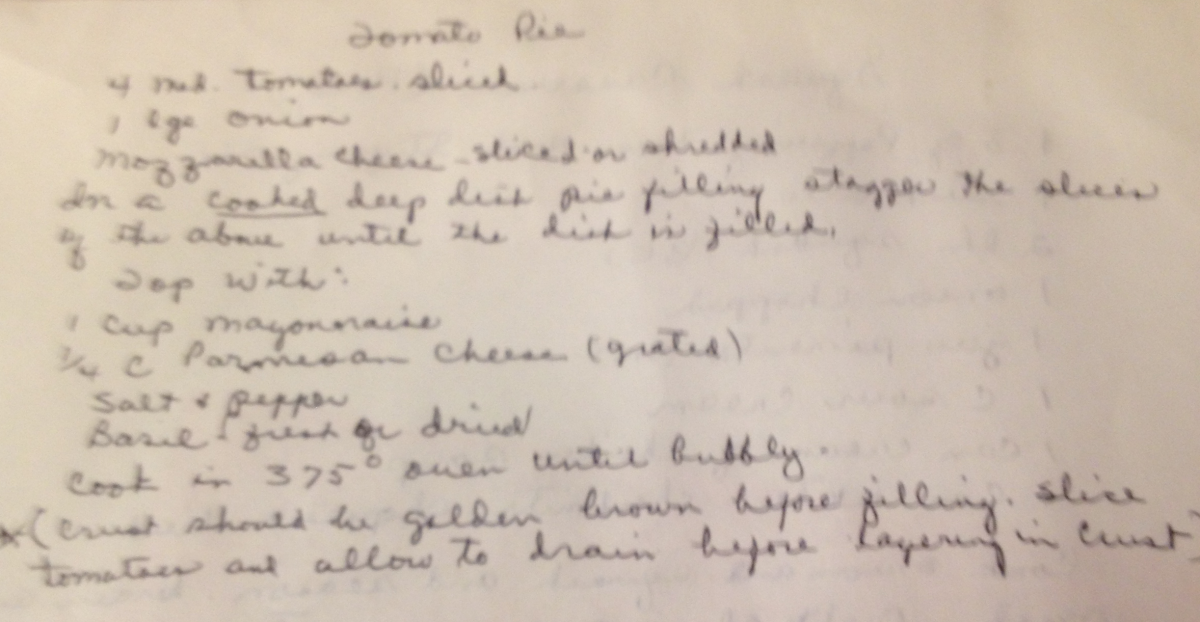 Tomato Pie
4 med. tomatoes. sliced
1 lge onion
Mozzarella cheese - sliced or shredded
In a cooked deep dish pie filling stagger the slices
of the above until the dish is filled.
Top with:
1 cup mayonnaise
C Parmesan cheese (grated)
Salt & pepper
Basil - fresh or dried
Cook in 375° oven until bubbly
*(Crust should be golden brown before filling. Slice
tomatoes and allow to drain before layering in crust)